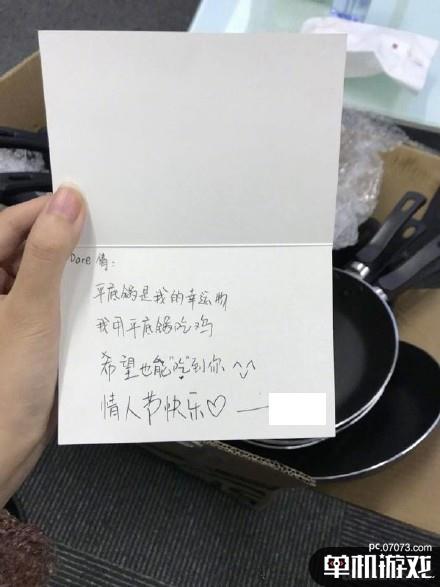 Dore 倩:
平底锅是我的幸运物
我用平底锅吃鸡
希望也能"吃"到你 ^_^
情人节快乐♡ ——
pc.07073.com
单机游戏